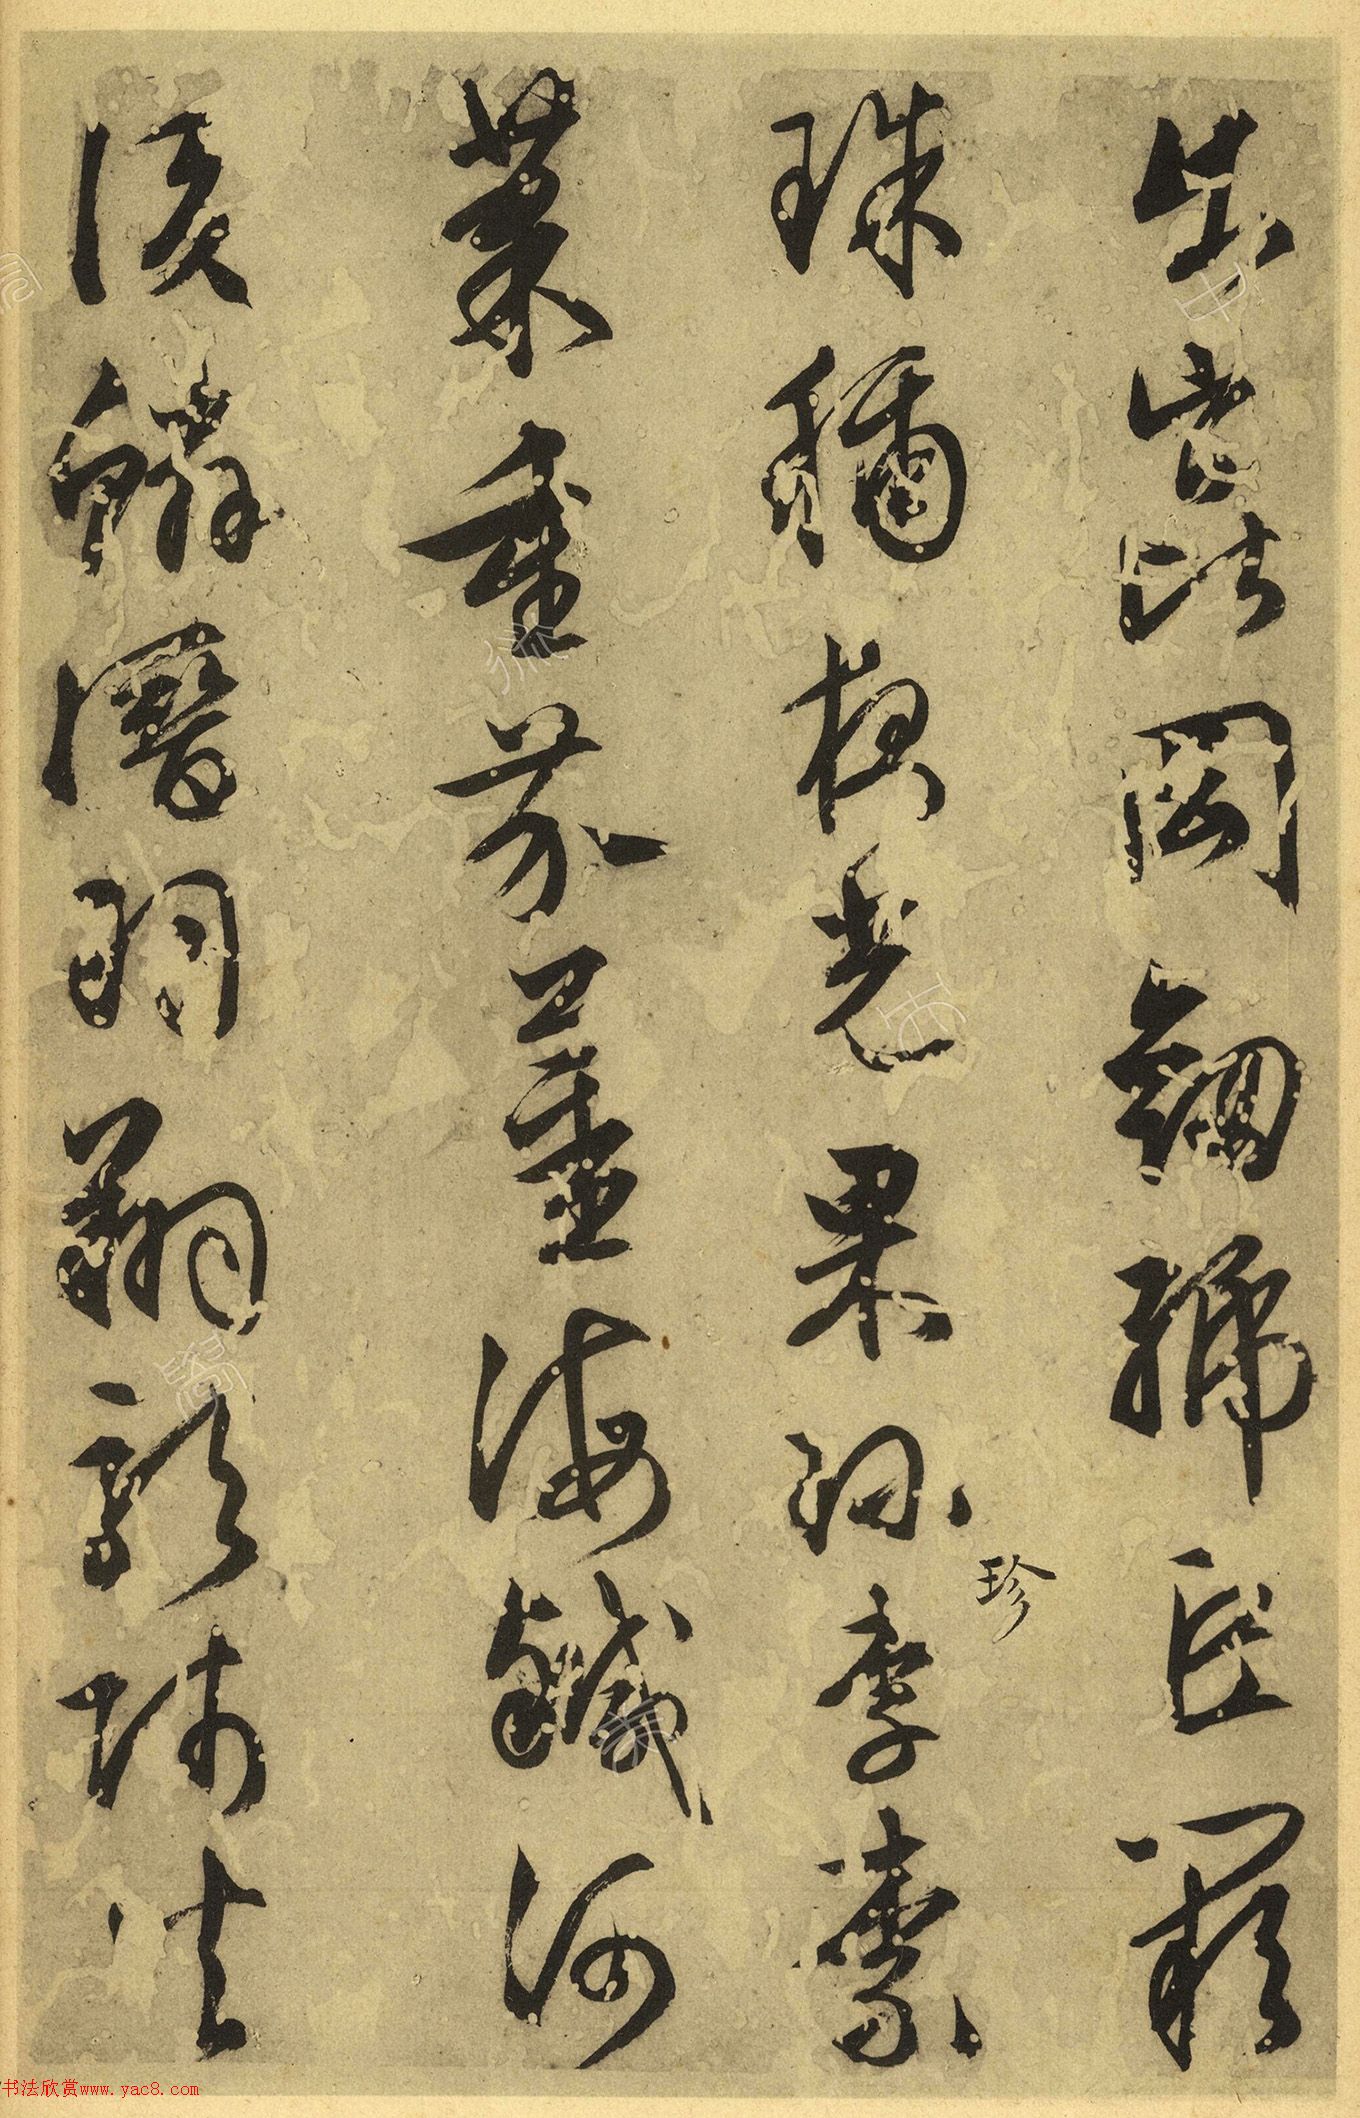 出崑岡劍號巨闕
珠稱夜光果珎李柰
珍
菜重芥薑海鹹河
淡鱗潛羽翔龍師火
书法欣赏www.yac8.com